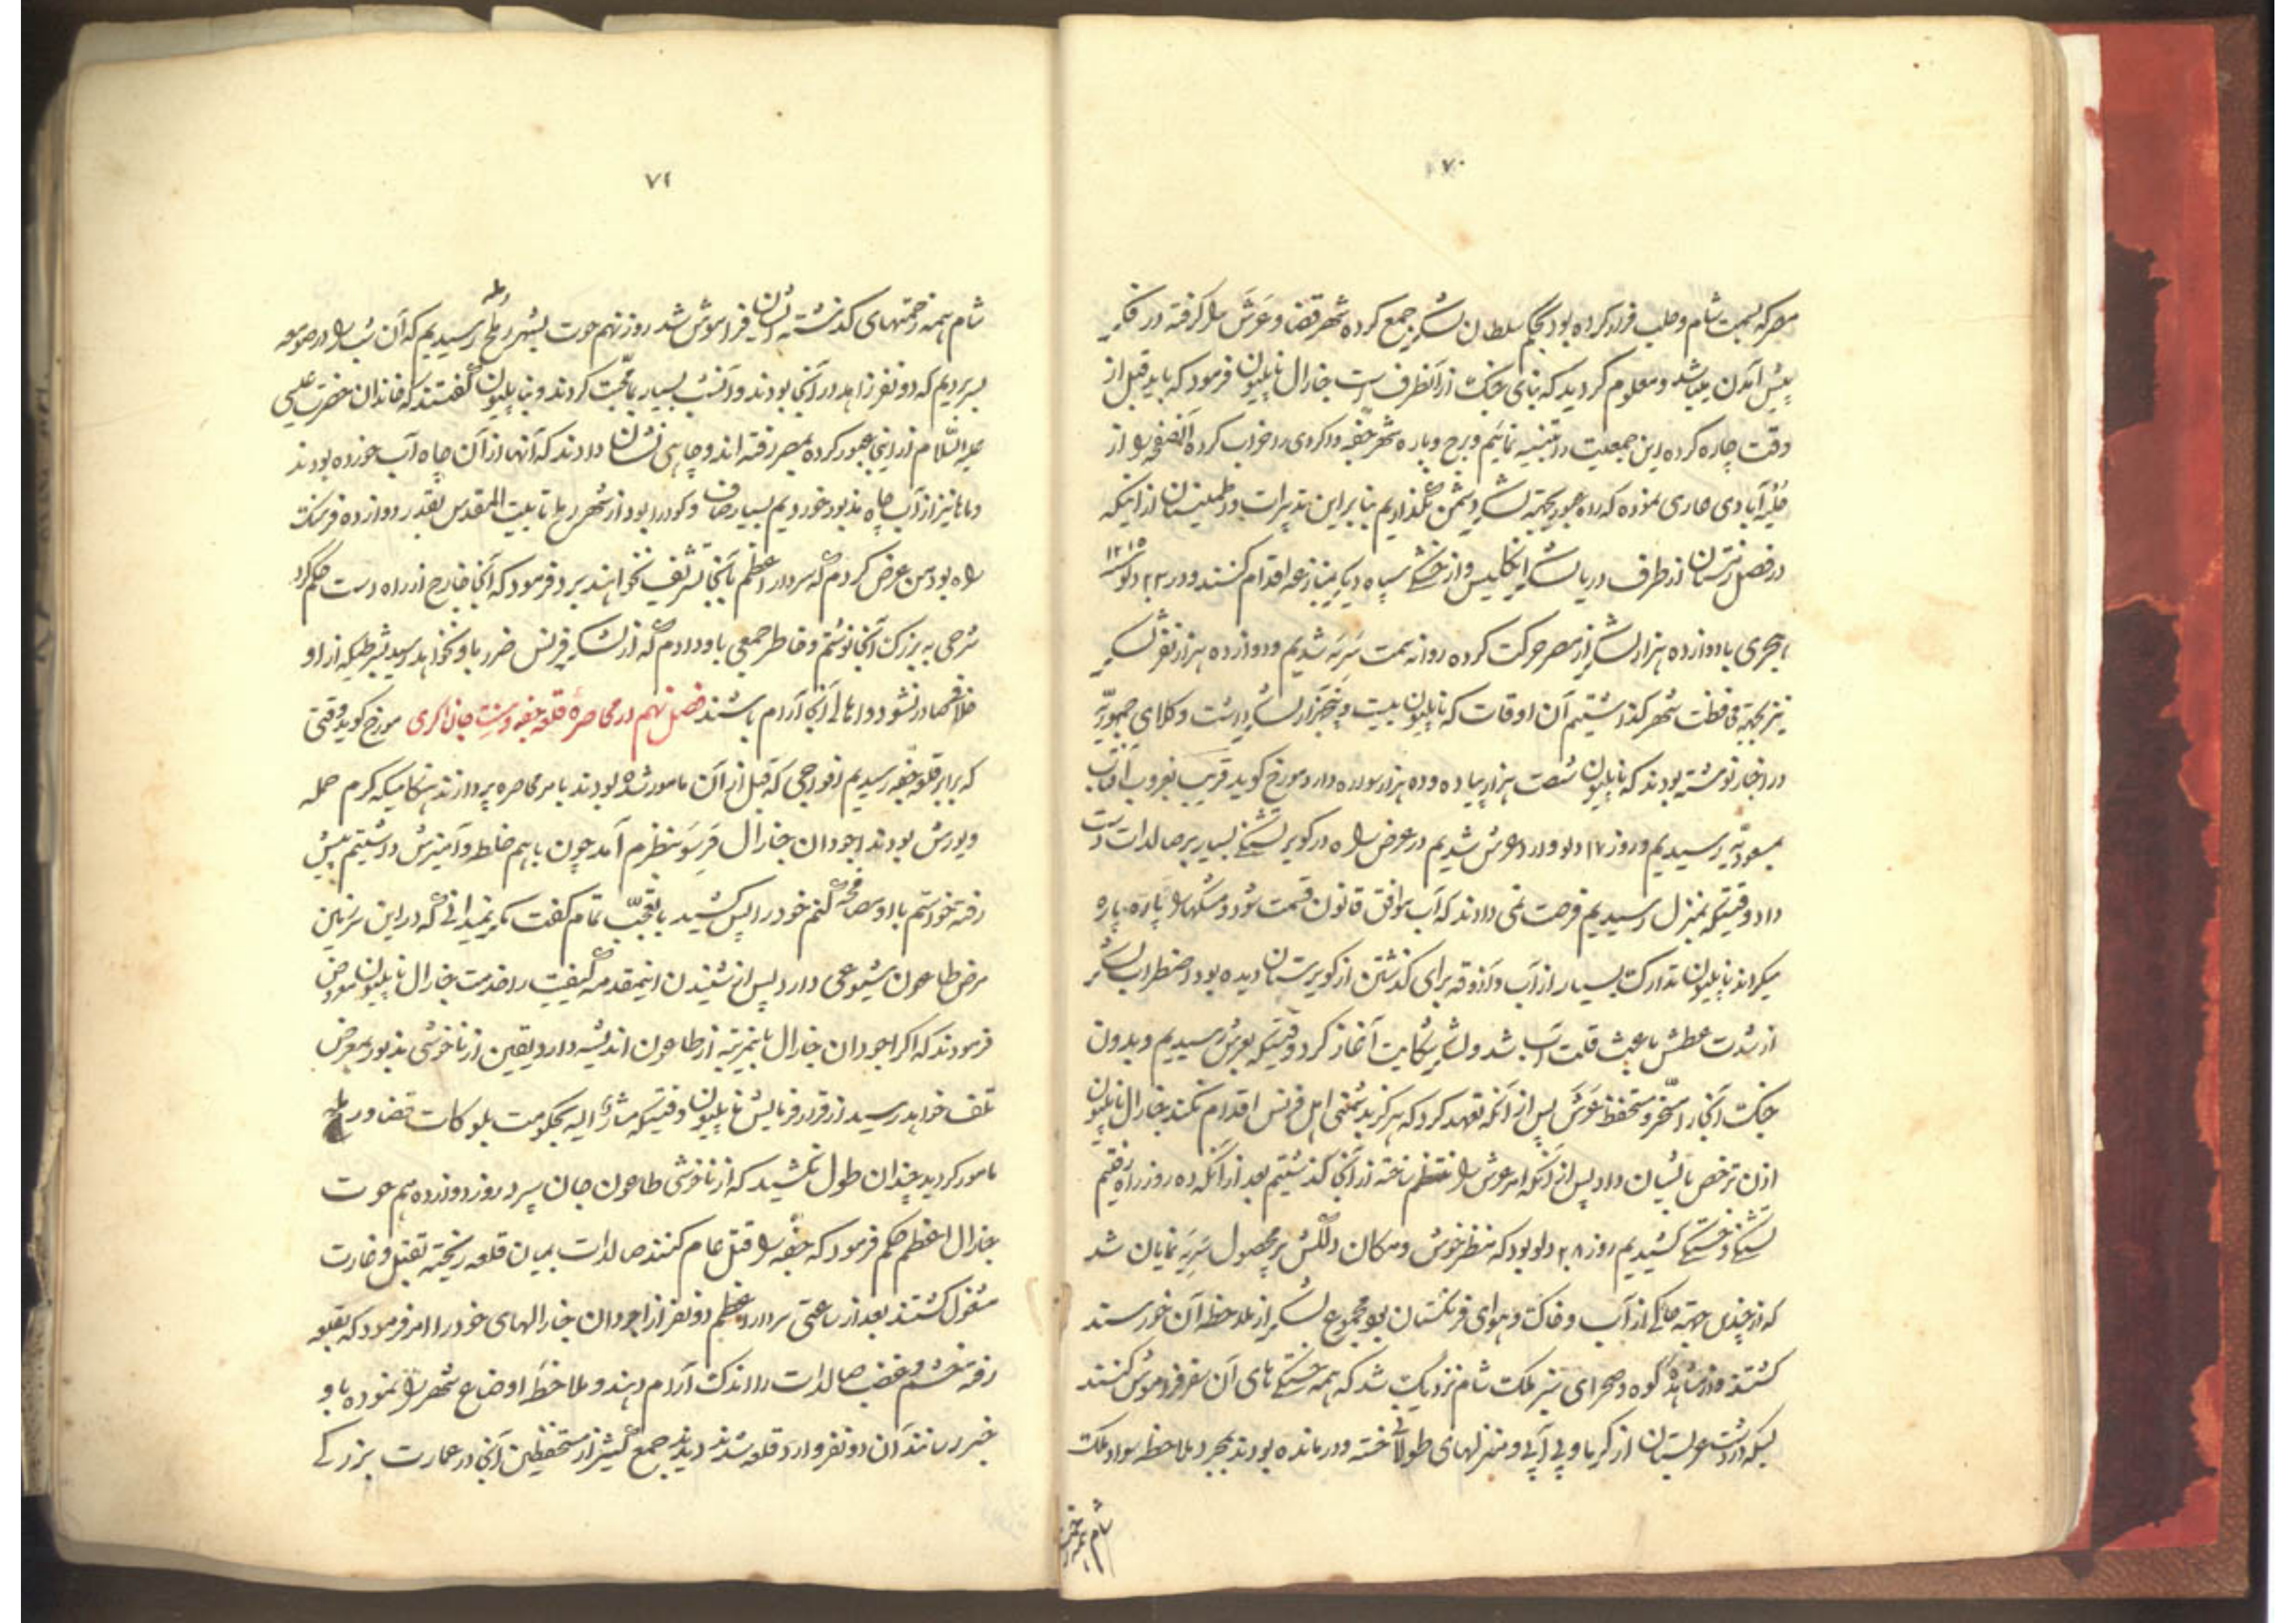 ۷۰
مصر که بسمت شام و حلب فرار کرده بود بحکم سلطان لشکر جمع کرده شهر قضا و عرش را گرفته در فکر
پیش آمدن میباشد و معلوم گردید که بنای جنگ از آنطرف است جنارال ناپلیون فرمود که باید قبل از
وقت چاره کرده این جمعیت را تنبیه نمائیم و برج و باره شهر جفه و اکر را خراب کرده آنصفحه را از
آبادی عاری نموده که راه عبور بجهة لشکر دشمن نگذاریم بنا بر این تدبیرات و اطمینان از اینکه
در فصل زمستان از طرف دریا لشکر انگلیس و از خشکی سپاه دیگر بمنازعه اقدام کنند و در ۲۲ دلو سنه ۱۲۱۵
هجری با دوازده هزار لشکر از مصر حرکت کرده روانه سمت سریه شدیم و دوازده هزار نفر لشکر
نیز بجهة محافظت شهر گذاشتیم آن اوقات که ناپلیون بیست و پنجهزار لشکر داشت وکلای جمهوریه
در اخبار نوشته بودند که ناپلیون شصت هزار پیاده و ده هزار سواره دارد مورخ گوید قریب بغروب آفتاب
بمسعودیه رسیدیم و روز ۱۷ دلو وارد عرش شدیم در عرض راه در کویر تشنگی بسیار بر صالدات دست
داد وقتیکه بمنزل رسیدیم فرصت نمی دادند که آب موافق قانون قسمت شود و مشکها را پاره پاره
میکردند ناپلیون تدارک بسیار از آب و آذوقه برای گذشتن از کویر ستان دیده بود اضطراب لشکر
از شدت عطش باعث قلت آب شد و لشکر شکایت آغاز کرد وقتیکه بعرش رسیدیم و بدون
جنگ آنجا را مسخر و مستحفظ عرش پس از آنکه تعهد کرد که هرگز بدشمنی اهل فرنس اقدام نکند جنارال ناپلیون
اذن ترخص بایشان داد پس از آنکه امر عرش را منتظم ساخته از آنجا گذشتیم بعد از آنکه ده روز راه رفتیم
تشنگی و خستگی کشیدیم روز ۲۸ دلو بود که منظر خوش و مکان دلکش پر محصول سریه نمایان شد
که از چندین جهة حاکی از آب و خاک و هوای فرنگستان بود مجموع لشکر از ملاحظه آن خورسند
گشتند و از مشاهده کوه و صحرای سبز ملک شام نزدیک شد که همه خستگی های آن سفر فراموش کنند
لشکر در دشت عربستان از گرما و بی آبی و منزلهای طولانی خسته و درمانده بودند بمجرد ملاحظه سواد ملک
شام همه زحمت
۷۱
شام همه زحمتهای گذشته ایشان فراموش شد روز نهم حوت بشهر رمله رسیدیم که آن شب را در صومعه
بسر بردیم که دو نفر زاهد در آنجا بودند و آنشب بسیار بما محبت کردند و بناپلیون گفتند که خاندان حضرت عیسی
علیه السلام از اینجا عبور کرده بمصر رفته اند و چاهی نشان دادند که آنها از آن چاه آب خورده بودند
و ما نیز از آب چاه مذبور خوردیم بسیار صاف و گوارا بود از شهر رمله تا بیت المقدس بقدر دوازده فرسنگ
راه بود من عرض کردم که سردار اعظم بآنجا تشریف نخواهند برد فرمود که آنجا خارج از راه است حکم کرد
شرحی به بزرگ آنجا نوشتم و خاطر جمعی باو دادم که از لشکر فرنس ضرر باو نخواهد رسید بشرطیکه از او
خلافی صادر نشود و اهالی آنجا آرام باشند فصل نهم در محاصره قلعه جفه و سنت جان اکری مورخ گوید وقتی
که برابر قلعه جفه رسیدیم افواجی که قبل از آن مامور شده بودند بامر محاصره پردازند هنگامیکه گرم حمله
و یورش بودند اجودان جنارال قرسو بنظرم آمد چون با هم خلطه و آمیزش داشتیم پیش
رفته خواستم با او مصافحه کنم خود را پس کشید با تعجب تمام گفت مگر نمیدانی که در این سرزمین
مرض طاعون شیوعی دارد پس از شنیدن اینمقدمه کیفیت را خدمت جنارال ناپلیون معروض
فرمودند که اگر اجودان جنارال باینمرتبه از طاعون اندیشه دارد یقین از ناخوشی مذبور بمعرض
تلف خواهد رسید از قرار فرمایش ناپلیون وقتیکه مشار الیه بحکومت بلوکات قضا و رمله
مامور گردید چندان طول نکشید که از ناخوشی طاعون جان سپرد روز دوازدهم حوت
جنارال اعظم حکم فرمود که جفه را قتل عام کنند صالدات بمیان قلعه ریخته بقتل و غارت
مشغول گشتند بعد از ساعتی سردار اعظم دو نفر از اجودان جنارالهای خود را امر فرمود که بقلعه
رفته خشم و غضب صالدات را اندک آرام دهند و ملاحظه اوضاع شهر را نموده باو
خبر رسانند آن دو نفر وارد قلعه شدند دیدند جمع کثیر از مستحفظین آنجا در عمارت بزرگی